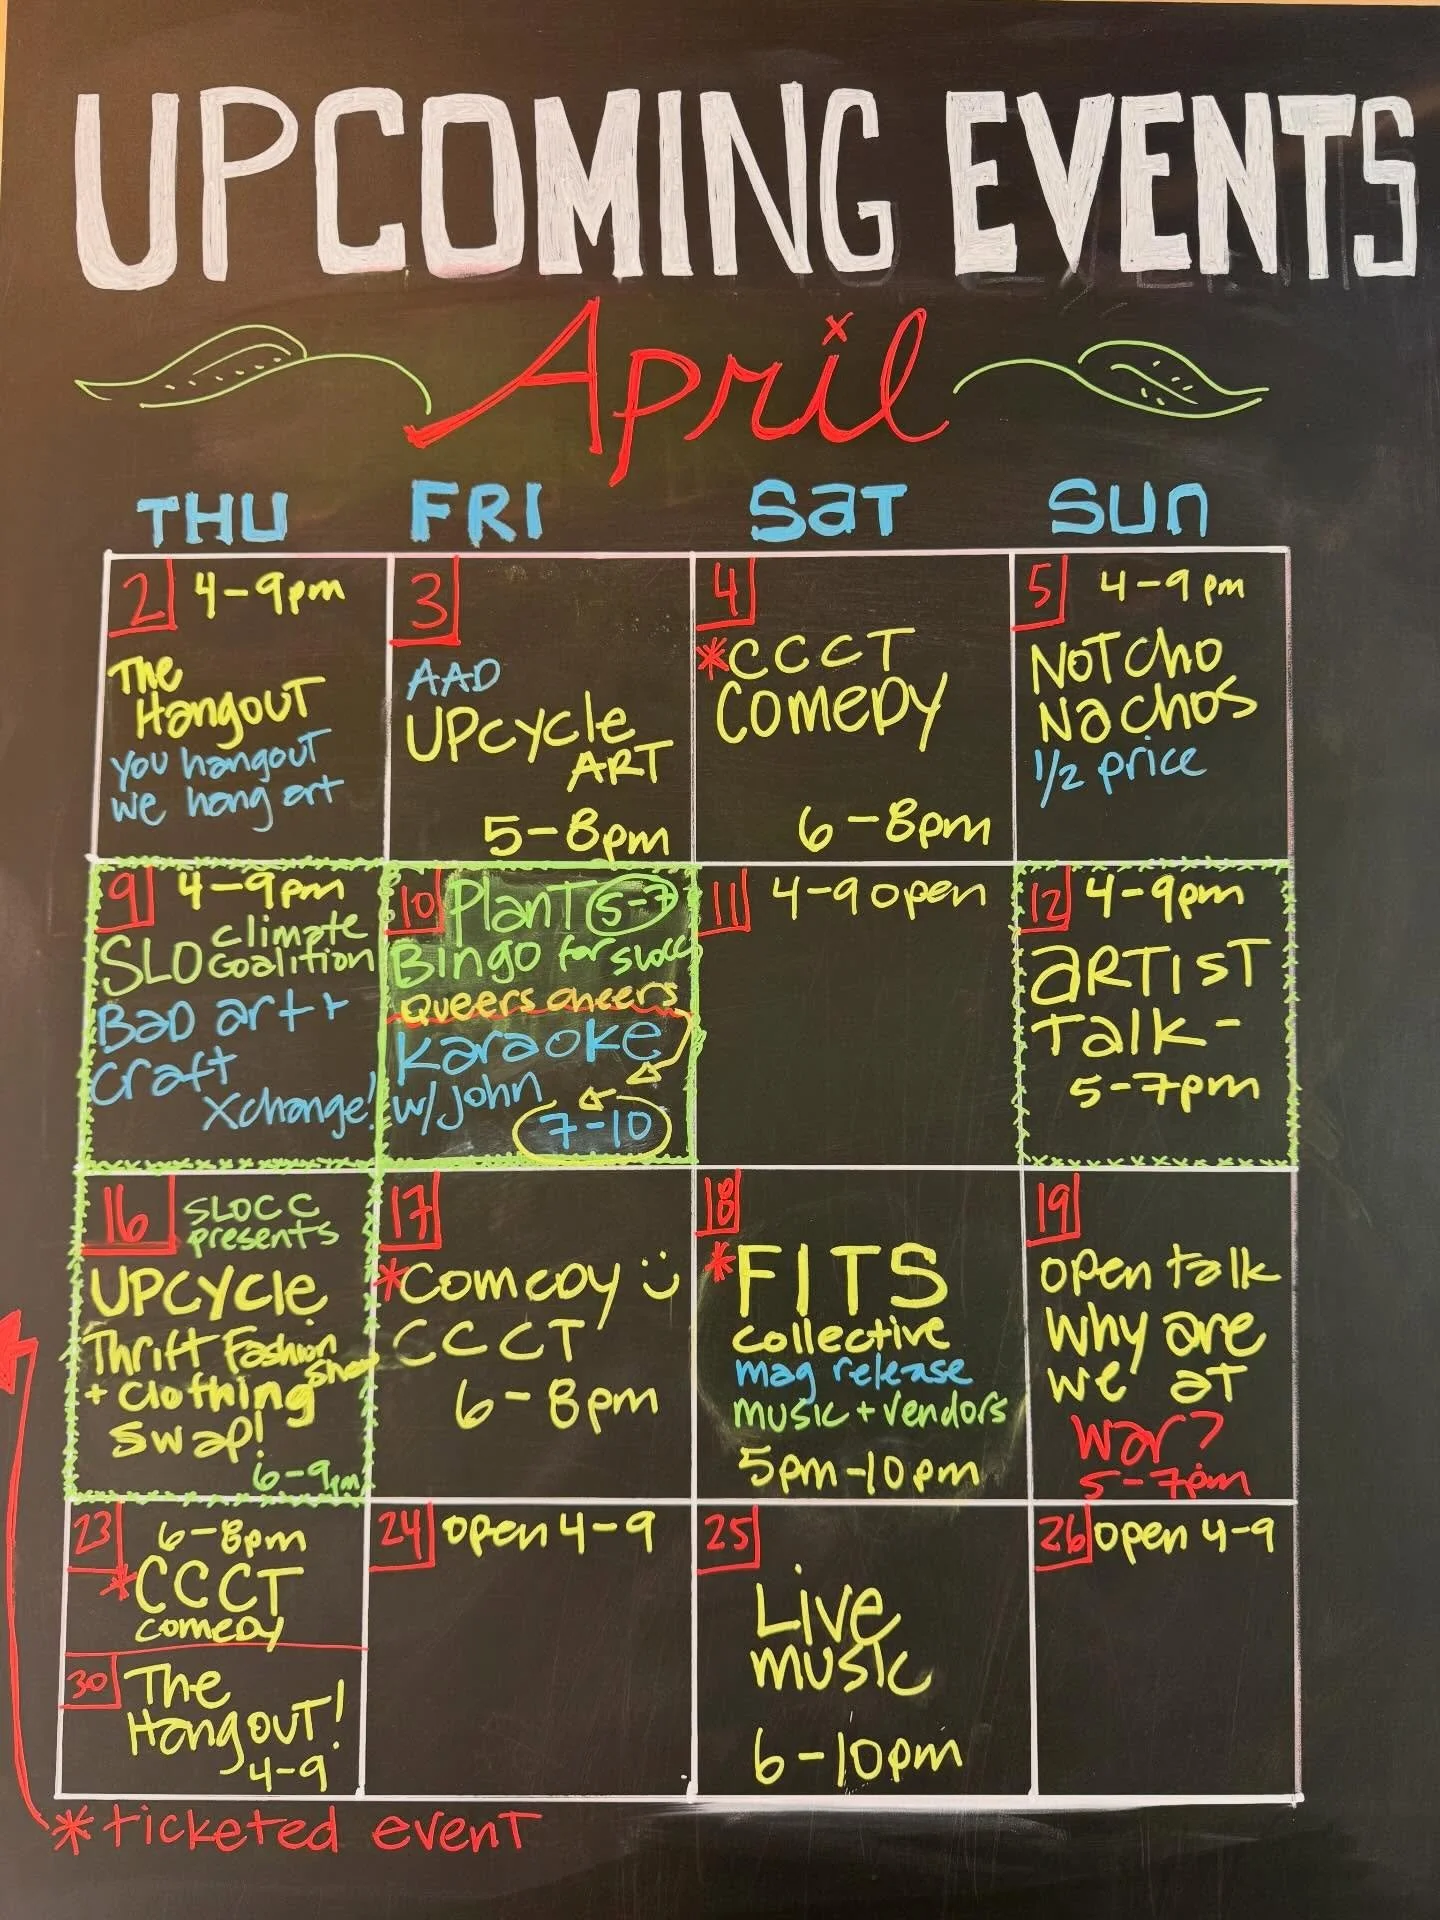 UPCOMING EVENTS
April
THU FRI SAT SUN
2 4-9pm
The
Hangout
you hangout
we hang art
3
AAD
UPcycle
ART
5-8pm
4
*CCCT
Comedy
6-8pm
5 4-9pm
Notcho
Nachos
1/2 price
9 4-9pm
SLO climate
coalition
Bad art +
craft
Xchange!
10 Plant 5-7
Bingo for slocc
Queers cheers
Karaoke
w/ John
7-10
11 4-9 open
12 4-9pm
artist
talk-
5-7pm
16 SLOCC
presents
UPcycle
Thrift Fashion
Show
+ clothing
swap!
6-9pm
17
*Comedy
CCCT
6-8pm
18
*FITS
collective
mag release
music + vendors
5pm-10pm
19
open talk
why are
we at
war?
5-7pm
23 6-8pm
*CCCT
comedy
30 The
Hangout!
4-9
24 open 4-9
25
Live
music
6-10pm
26 open 4-9
*ticketed event